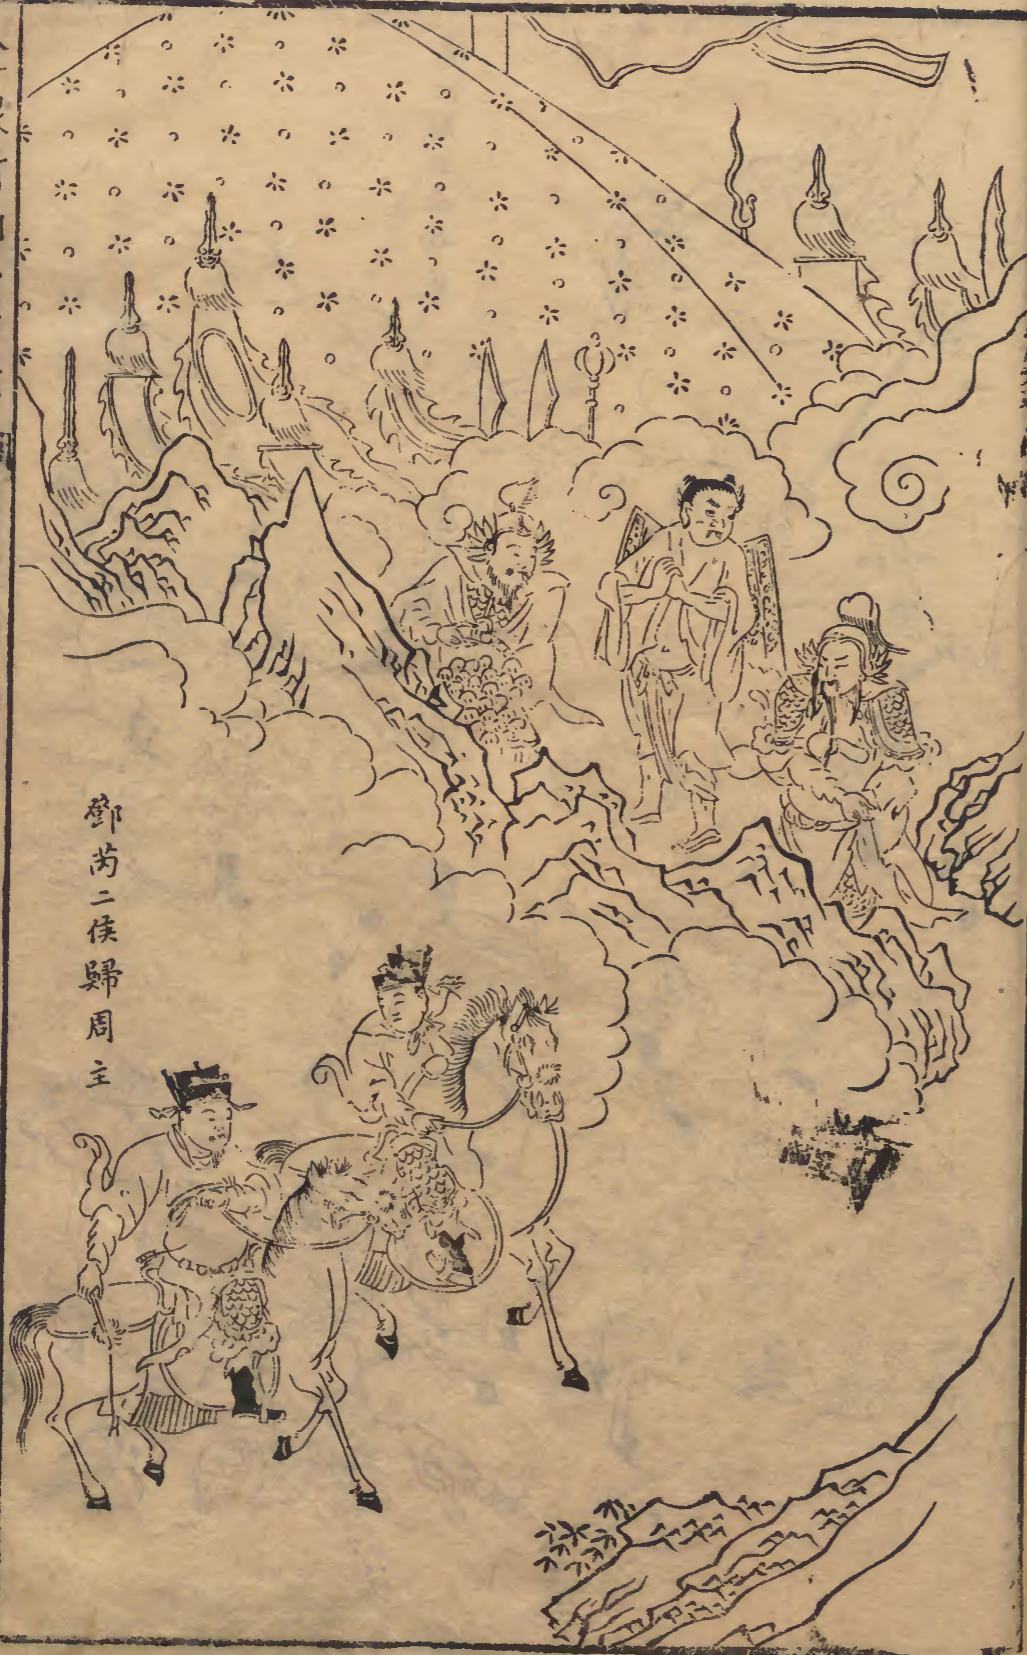 鄧芮二侯歸周主